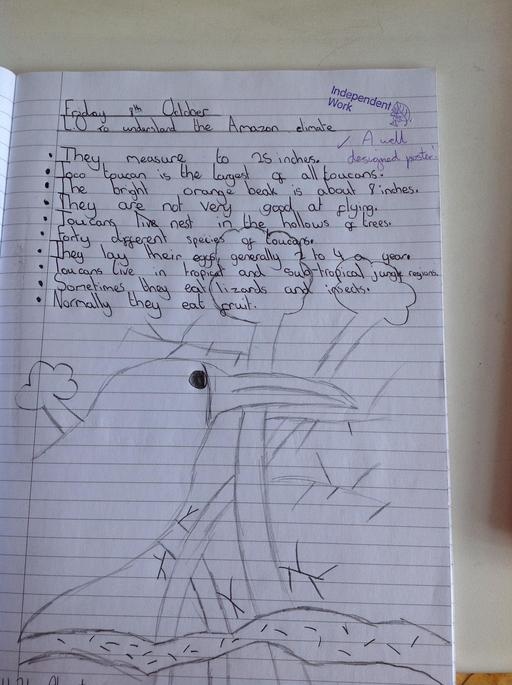 Independent
Work
Friday 9th October
L.I to understand the Amazon climate
✓ A well
designed poster!
• They measure to 25 inches.
• Toco toucan is the largest of all toucans.
• The bright orange beak is about 8 inches.
• They are not very good at flying.
• Toucans live nest in the hollows of trees.
• Forty different species of toucans.
• They lay their eggs generally 2 to 4 a year.
• Toucans live in tropical and sub-tropical jungle regions.
• Sometimes they eat lizards and insects.
• Normally they eat fruit.